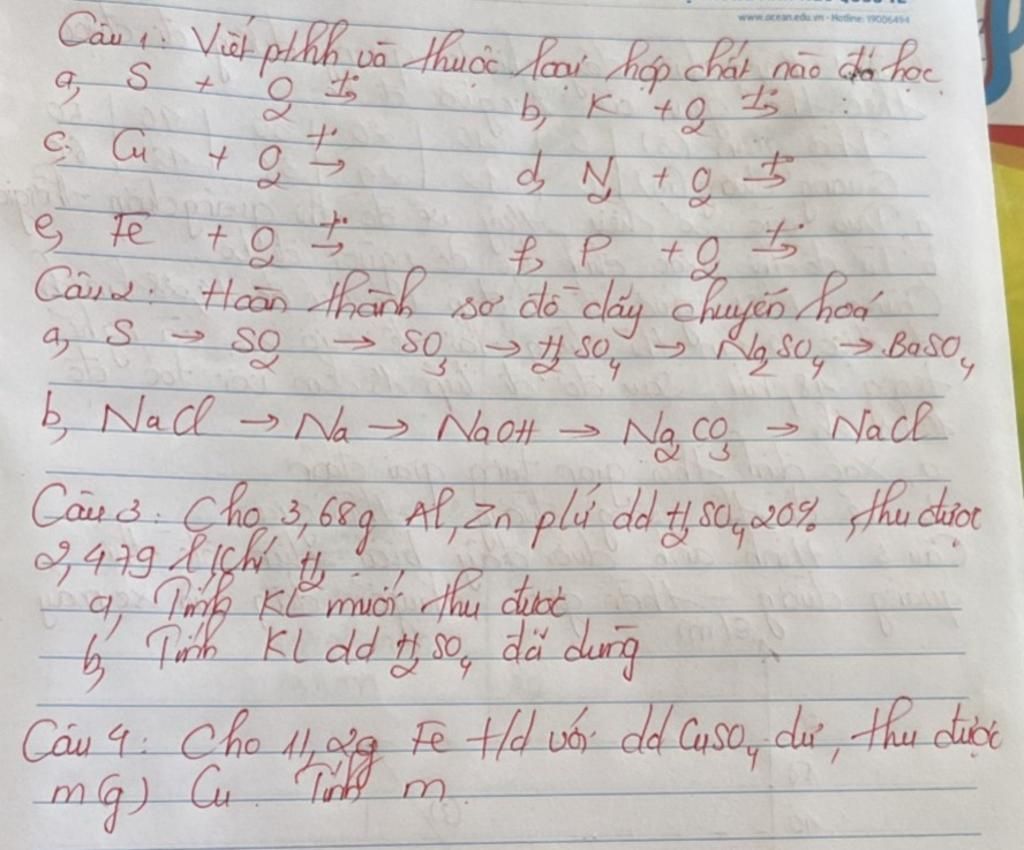 www.ocean.edu.vn - Hotline: 19006494
Câu 1: Viết pthh và thuộc loại hợp chất nào đã học
a, S + O₂ t°→ b, K + O₂ t°→ :
c, Cu + O₂ t°→ d, N₂ + O₂ t°→
e, Fe + O₂ t°→ f, P + O₂ t°→
Câu 2: Hoàn thành sơ đồ dãy chuyển hoá
a, S → SO₂ → SO₃ → H₂SO₄ → Na₂SO₄ → BaSO₄
b, NaCl → Na → NaOH → Na₂CO₃ → NaCl
Câu 3: Cho 3,68g Al, Zn pứ dd H₂SO₄ 20%, thu được
2,479 l khí H₂
a, Tính KL muối thu được
b, Tính KL dd H₂SO₄ đã dùng
Câu 4: Cho 11,2g Fe t/d với dd CuSO₄ dư, thu được
m(g) Cu. Tính m